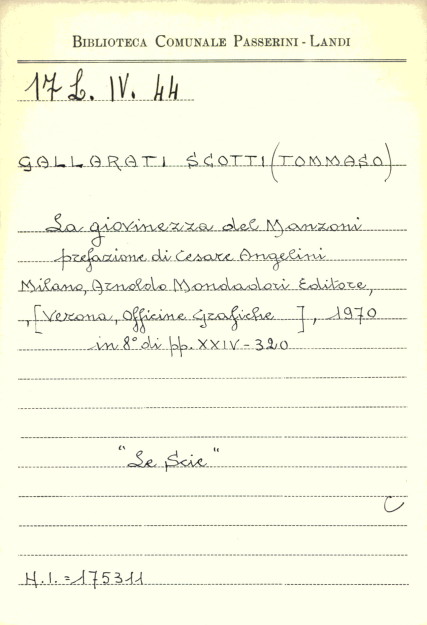 BIBLIOTECA COMUNALE PASSERINI - LANDI
17 L. IV. 44
GALLARATI SCOTTI (TOMMASO)
La giovinezza del Manzoni
prefazione di Cesare Angelini
Milano, Arnoldo Mondadori Editore,
, [Verona, Officine Grafiche ], 1970
in 8° di pp. XXIV - 320
"Le Scie"
C
N.I. = 175311